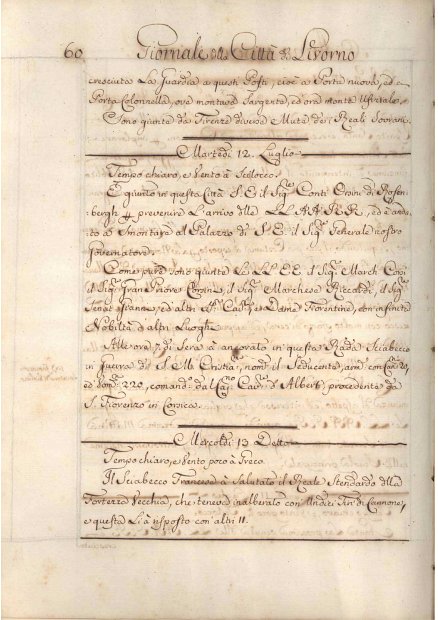 60 Giornale della Città di Livorno
cresciuta La Guardia a questi Posti, cioè a Porta nuova, ed a
Porta Colonnella, ove montava Sargente, ed ora monta Ufiziale.
Sono giunte da Firenze diverse Mute dei Reali Sovrani.
Martedì 12. Luglio
Tempo chiaro, e Vento à Scilocco.
È giunto in questa Città S. E. il Sig.re Conte Orsini di Rosen-
bergh prevenire L'arrivo delle LL. AA. RR., ed è anda-
to à smontare al Palazzo di S. E. il Sig.re Generale nostro
Governatore.
Come pure sono giunte Le LL. EE. il Sig.re March.
il Sig.re Gran Priore Corsini, il Sig.re Marchese Riccardi, il Sig.re
Senat. ed altri Cav.ri, e Dame Fiorentine, con infinita
Nobiltà d'altri Luoghi.
Alle ore di Sera à ancorato in questa Rada Sciabecco
in Guerra di S. M. Cristia. nom.to il Seducente, arm.to con Can.ni 20,
ed Uom.ni 220, comand.to da Cav.re d'Albert, procedente da
S. Fiorenzo in Corsica.
Mercoldì 13 Detto
Tempo chiaro, e Vento poco à Greco.
Il Sciabecco Francese à Salutato il Reale Stendardo della
Fortezza Vecchia, che teneva inalberato con Undici Tiri di Cannone,
e questa Li à risposto con altri 11.